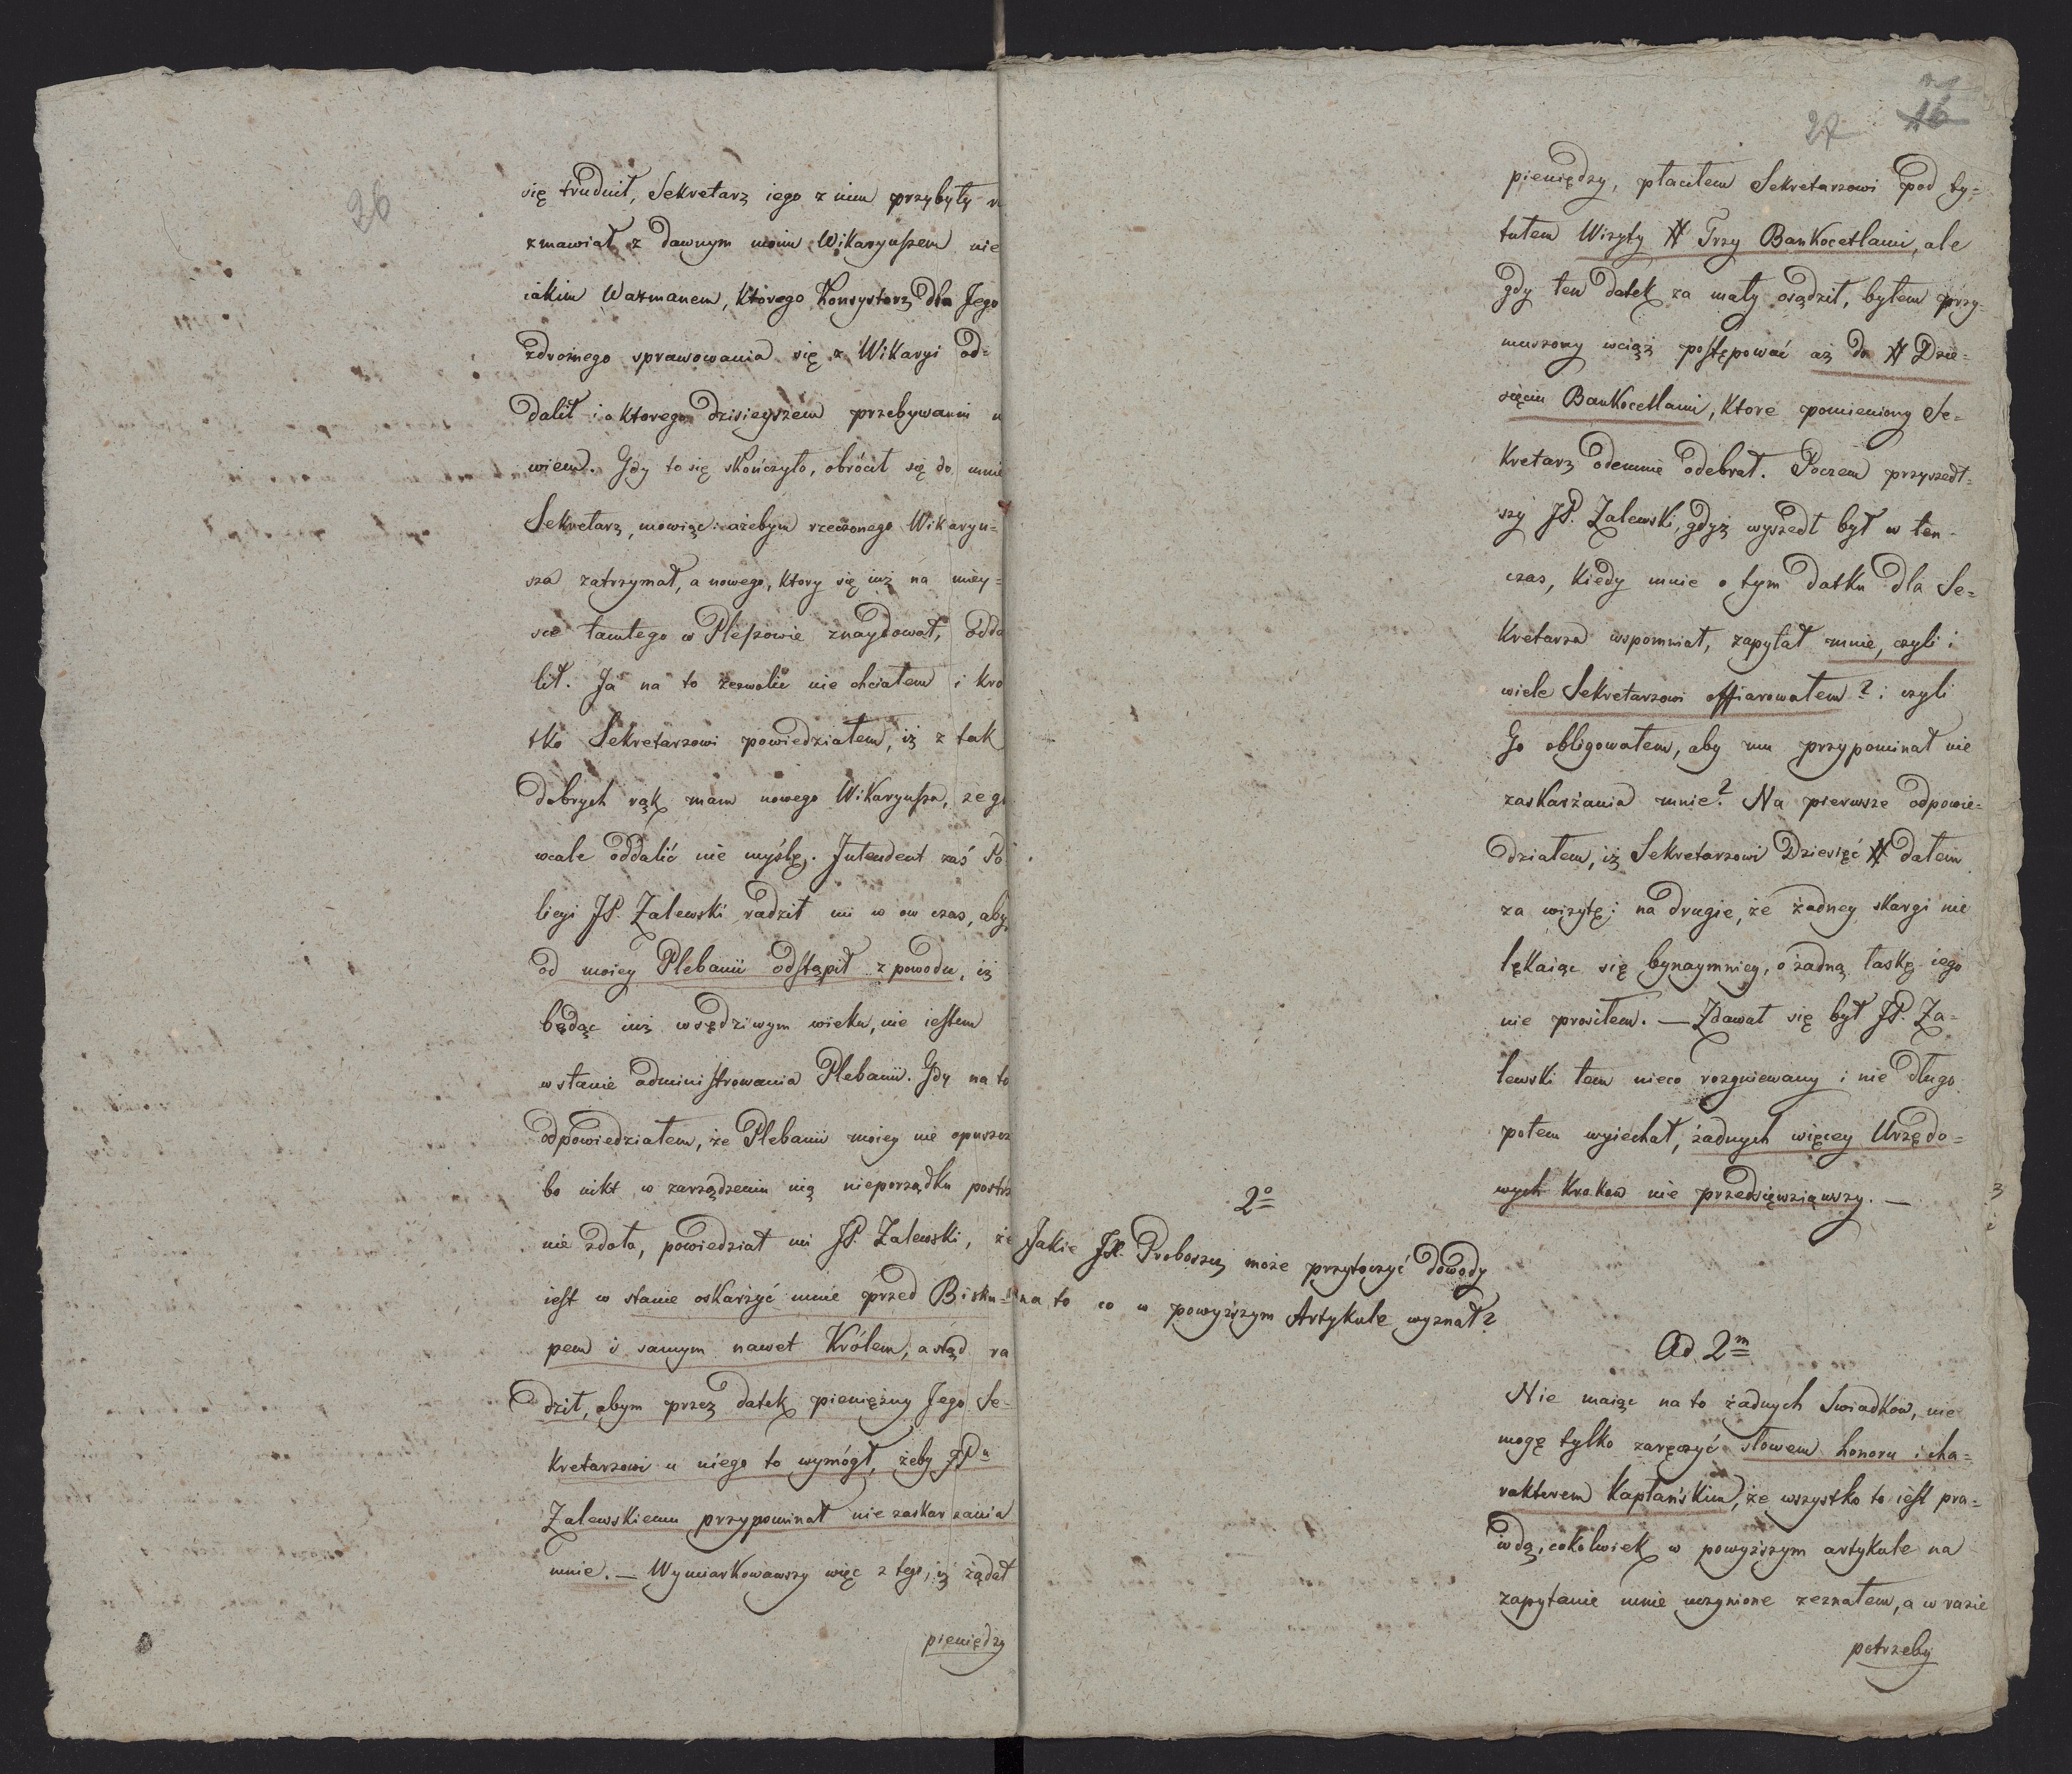 26
się trudnił, Sekretarz iego z nim przybyły
zmawiał z dawnym moim Wikaryuszem nie
iakim Wazmanem, którego Konsystorz dla Jego
zdrożnego sprawowania się z Wikaryi od=
dalił i o ktorego dzisieyszem przebywaniu
wiem. Gdy to się skończyło, obrócił się do mnie
Sekretarz, mowiąc: ażebym rzeczonego Wikaryu=
sza zatrzymał, a nowego, ktory się iuż na miey=
sce tamtego w Pleszowie znaydował, odda
lił. Ja na to zezwolić nie chciałem i kro
tko Sekretarzowi powiedziałem, iż z tak
dobrych rąk mam nowego Wikaryusza, że go
wcale oddalić nie myślę. Intendent zaś Po
licyi JP. Zalewski radził mi w ow czas, aby
od moiey Plebanii odstąpił z powodu, iż
będąc iuż w sędziwym wieku, nie iestem
w stanie administrowania Plebanii. Gdy na to
odpowiedziałem, że Plebanii moiey nie opuszcz
bo nikt w zarządzeniu nią nieporządku postrz
nie zdoła, powiedział mi JP. Zalewski, że
iest w stanie oskarżyć mnie przed Bisku=
pem i samym nawet Królem, a stąd ra
dził, abym przez datek pieniężny Jego Se=
kretarzowi u niego to wymógł, żeby JPu
Zalewskiemu przypominał nie zaskarzania
mnie. — Wymiarkowawszy więc z tego, iż żądał
pieniędzy
27 16
pieniędzy, płaciłem Sekretarzowi pod ty=
tułem Wizyty # Trzy Bankocetlami, ale
gdy ten datek za mały osądził, byłem przy-
muszony wciąż postępować aż do # Dzie=
sięciu Bankocetlami, ktore pomieniony Se=
kretarz odemnie odebrał. Poczem przyszedł=
szy JP. Zalewski, gdyż wyszedł był w ten-
czas, kiedy mnie o tym datku dla Se=
kretarza wspomniał, zapytał mnie, czyli i
wiele Sekretarzowi offiarowałem? i czyli
Go obligowałem, aby mu przypominał nie
zaskarżania mnie? Na pierwsze odpowie=
działem, iż Sekretarzowi Dziesięć # dałem
za wizytę; na drugie, że żadney skargi nie
lękaiąc się bynaymniey, o żadną łaskę iego
nie prosiłem. — Zdawał się był JP. Za=
lewski tem nieco rozgniewany i nie długo
potem wyiechał, żadnych więcey Urzędo=
wych krokow nie przedsięwziąwszy. —
2o
Jakie JX. Proboszcz może przytoczyć dowody
na to co w powyższym Artykule wyznał?
Ad 2m
Nie maiąc na to żadnych Swiadkow, nie
mogę tylko zaręczyć słowem honoru i cha=
rakterem Kapłańskim, że wszystko to iest pra=
wdą, cokolwiek w powyższym artykule na
zapytanie mnie uczynione zeznałem, a w razie
potrzeby